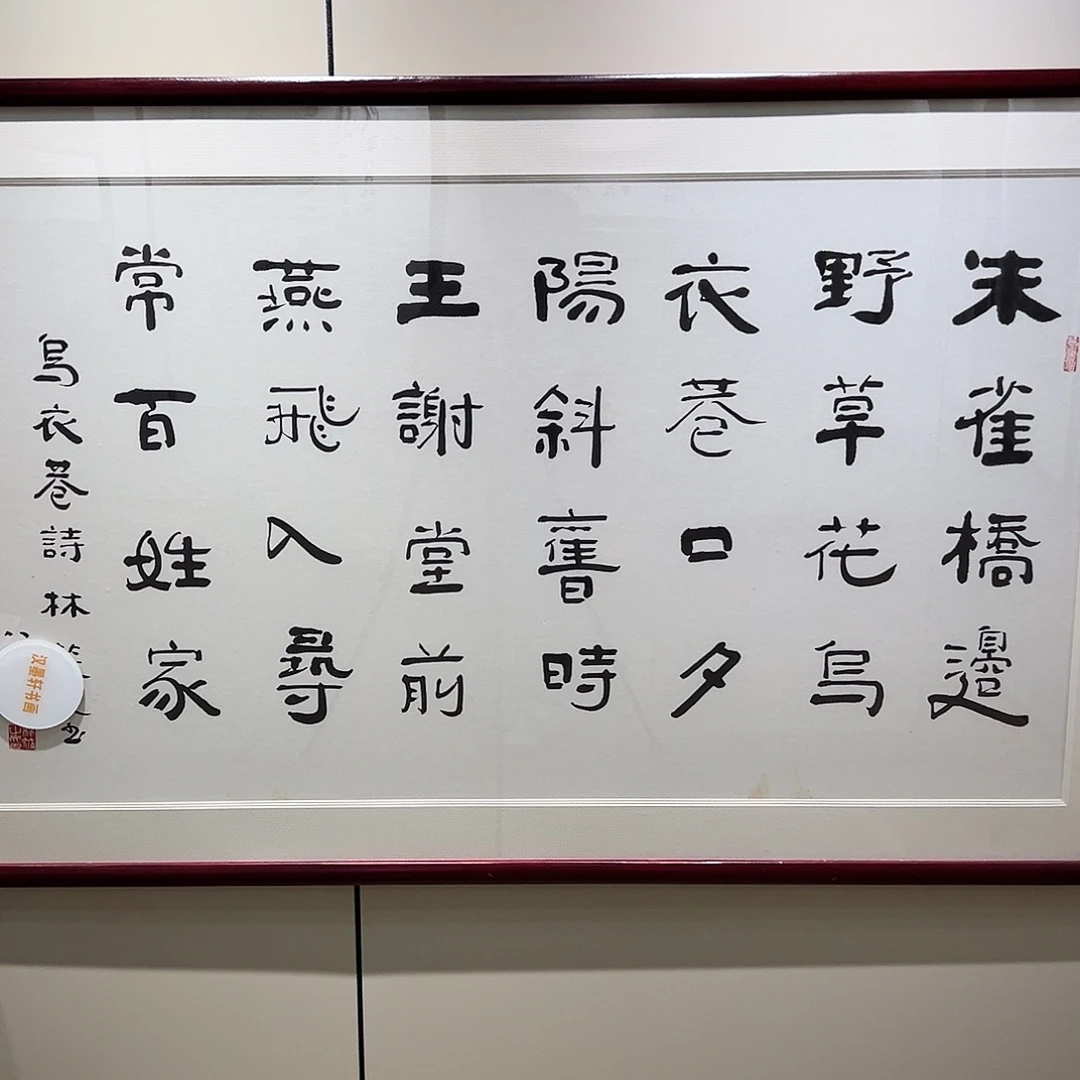 朱雀橋邊
野草花烏
衣巷口夕
陽斜舊時
王謝堂前
燕飛入尋
常百姓家
烏衣巷詩林
书
汉墨轩书画